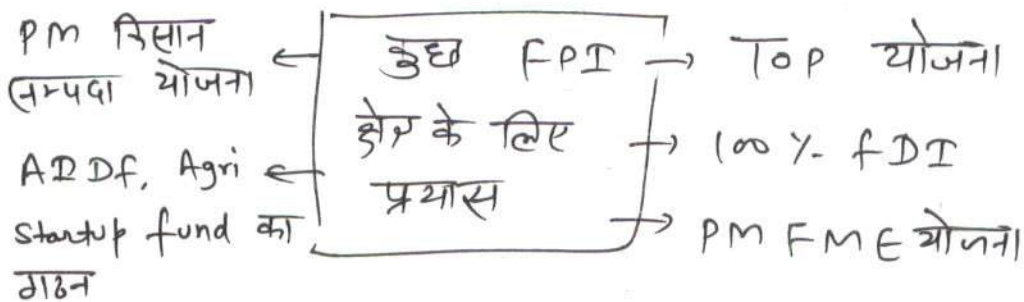 PM किसान
सम्पदा योजना
AIDF, Agri
Startup fund का
गठन
कुछ FPI
क्षेत्र के लिए
प्रयास
TOP योजना
100 %. FDI
PM FME योजना